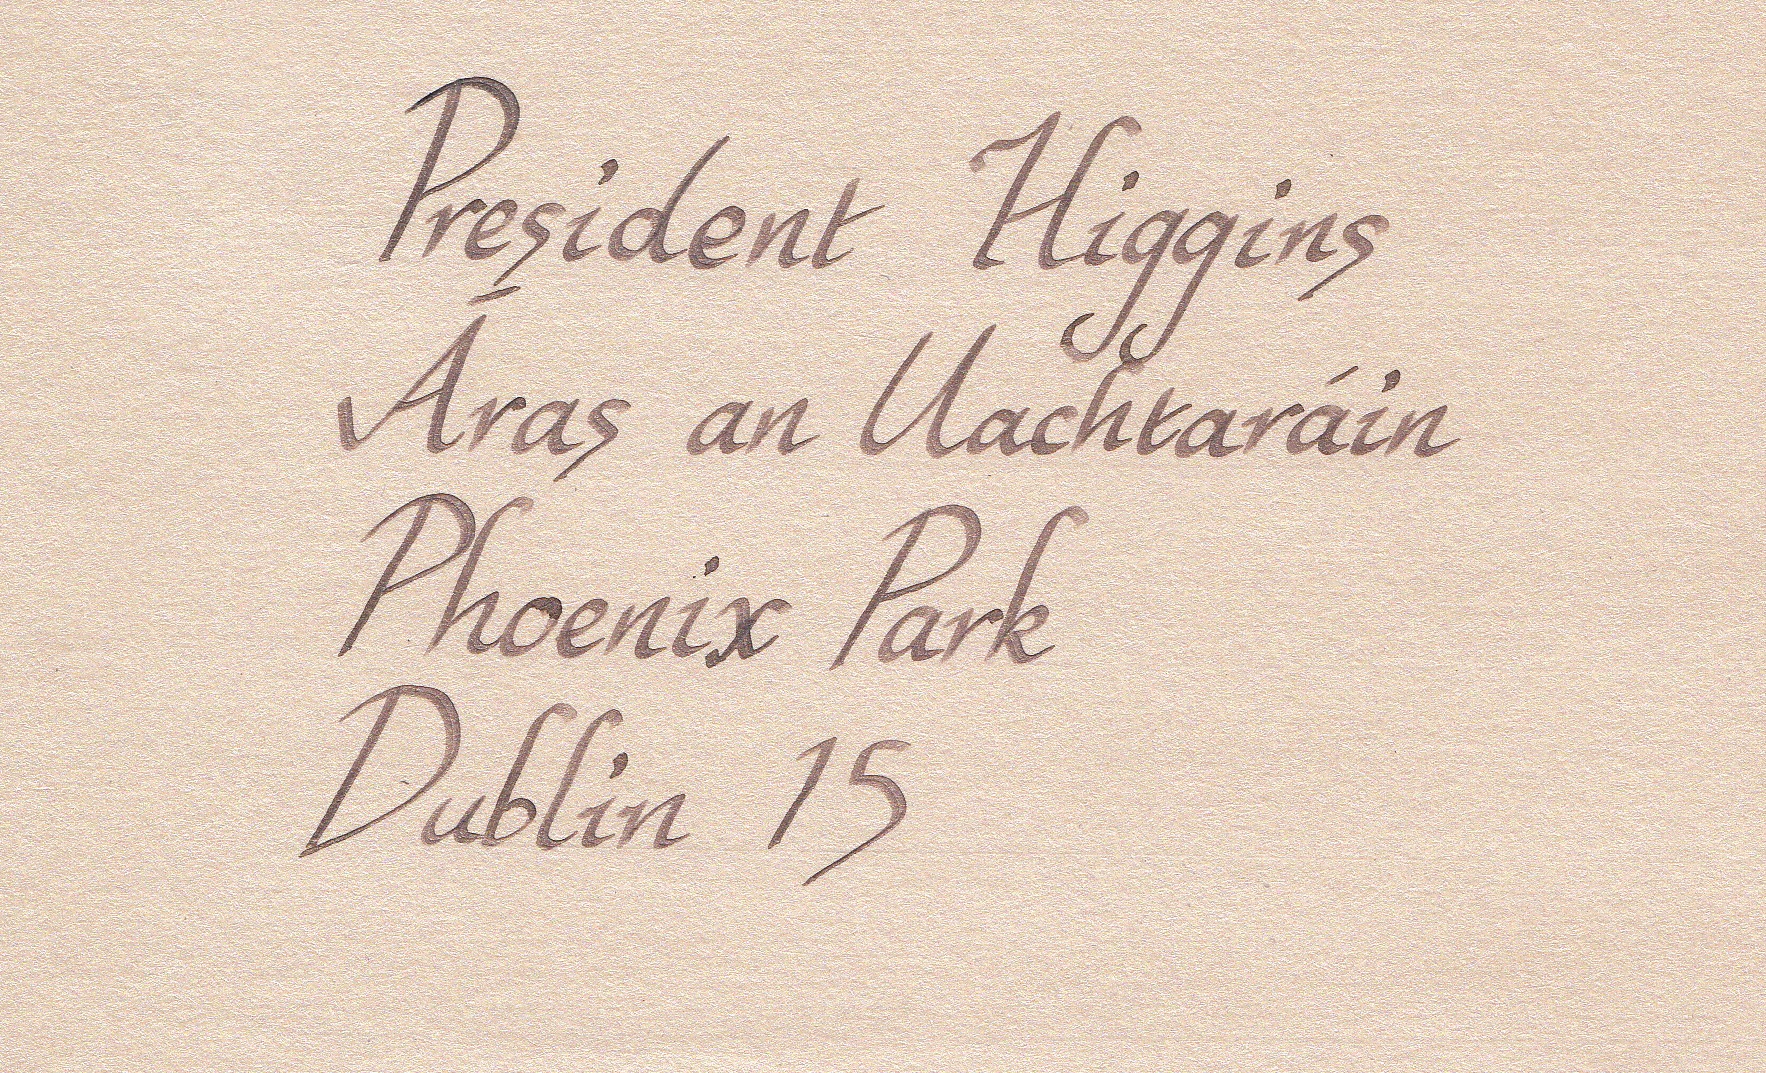 President Higgins
Áras an Uachtaráin
Phoenix Park
Dublin 15